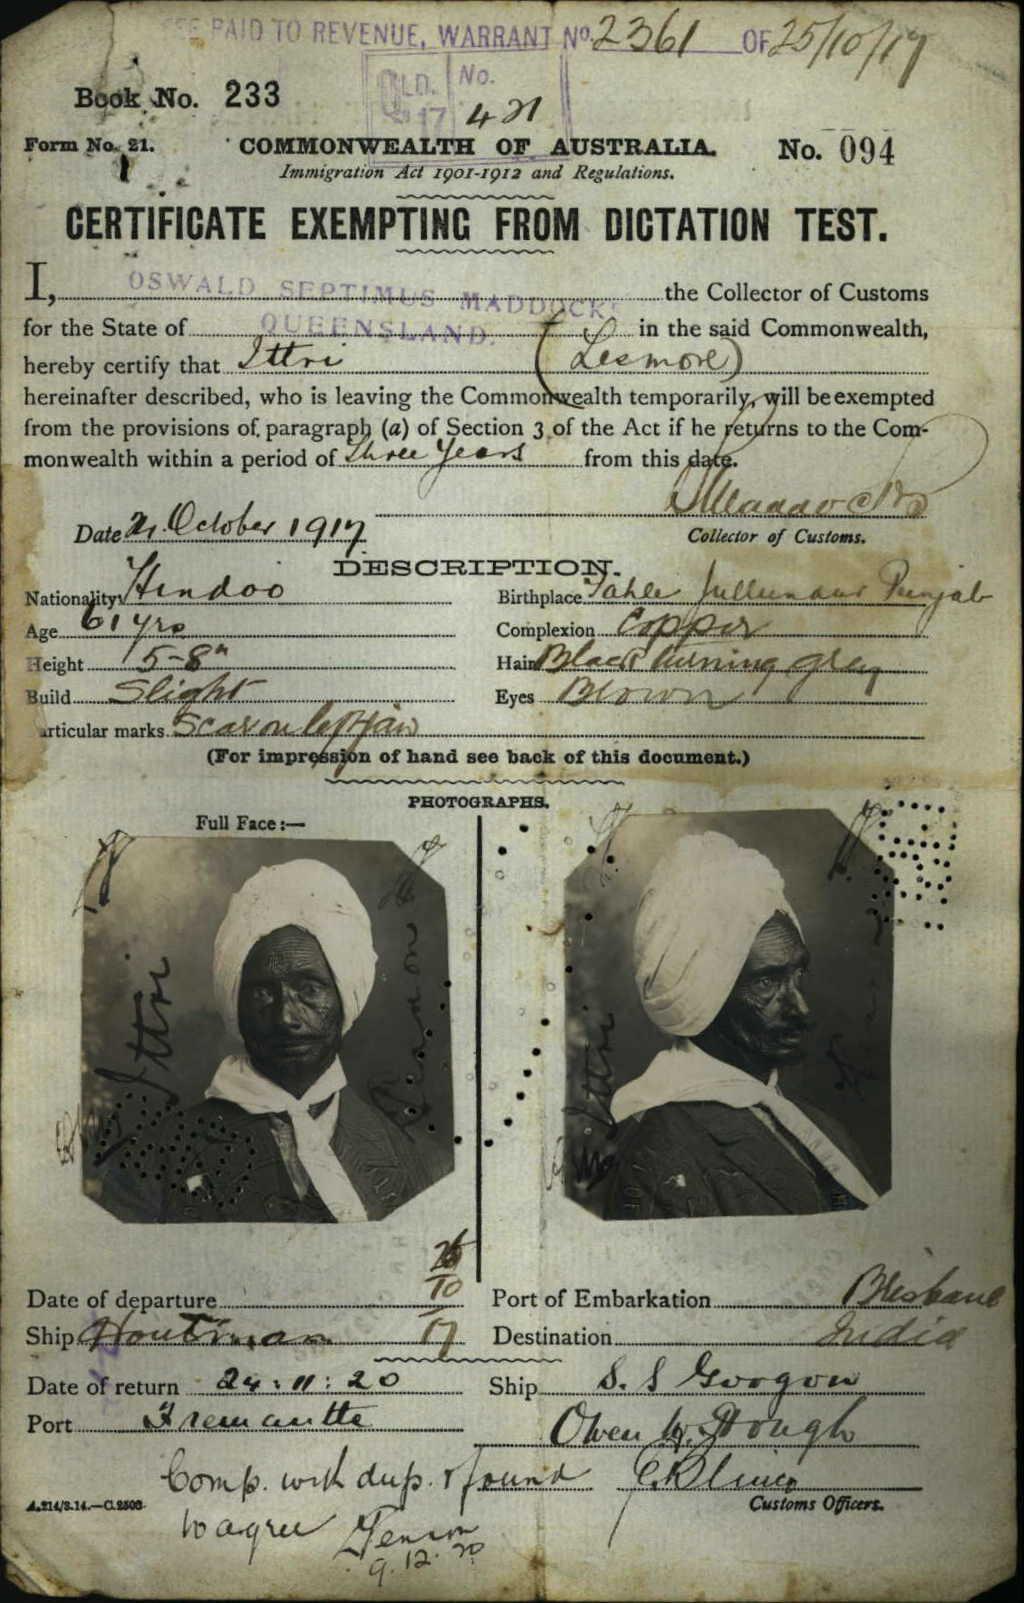 FEE PAID TO REVENUE, WARRANT No. 2361 OF 25/10/17
QLD. No.
17 421
Book No. 233
Form No. 21.
COMMONWEALTH OF AUSTRALIA.
No. 094
1
Immigration Act 1901-1912 and Regulations.
CERTIFICATE EXEMPTING FROM DICTATION TEST.
I, OSWALD SEPTIMUS MADDOCKS the Collector of Customs
for the State of QUEENSLAND. in the said Commonwealth,
hereby certify that Ittri (Lesmore)
hereinafter described, who is leaving the Commonwealth temporarily, will be exempted
from the provisions of paragraph (a) of Section 3 of the Act if he returns to the Com-
monwealth within a period of three years from this date.
Maddocks
Date 21. October 1917
Collector of Customs.
DESCRIPTION.
Nationality Hindoo
Birthplace Jullundur Punjab
Age 61 yrs
Complexion Copper
Height 5-8"
Hair Black turning grey
Build Slight
Eyes Brown
articular marks Scar on left jaw
(For impression of hand see back of this document.)
PHOTOGRAPHS.
Full Face:—
Ittri
Ittri
Date of departure 25/10/17
Port of Embarkation Brisbane
Ship Houtman
Destination India
Date of return 24:11:20
Ship S.S Gorgon
Port Fremantle
Owen
Comp. with dup. & found
to agree
9.12.20
A.214/3.14.—C.2506.
Customs Officers.